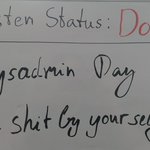 sten Status: Do
ysadmin Day
shit by yourself